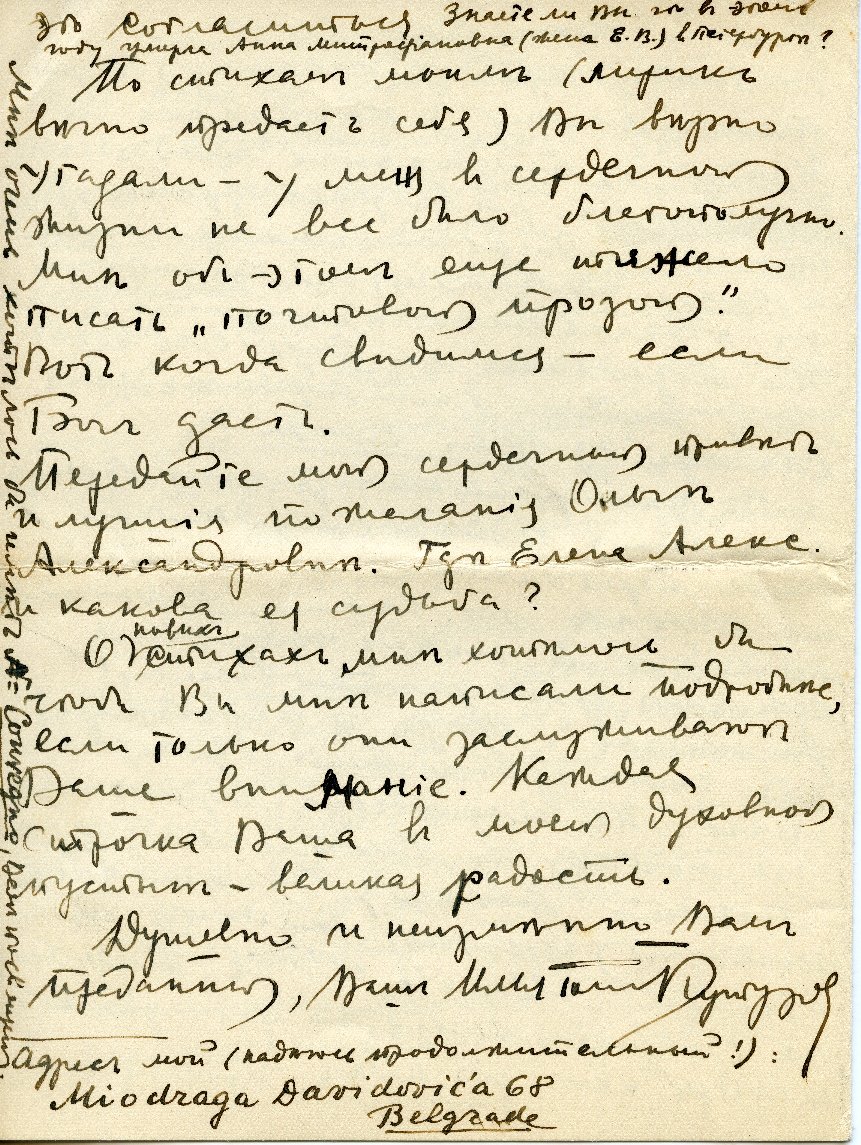 это согласиться. Знаете ли Вы что в этомъ
году умерла Анна Митрофановна (жена Е. В.) в Петербургѣ?
По стихамъ моимъ (лирикъ
вѣчно предастъ себя) Вы вѣрно
угадали – у меня в сердечной
жизни не все было благополучно.
Мнѣ объ этомъ еще тяжело
писать „почтовой прозой“.
Вотъ когда свидимся – если
Богъ дастъ.
Передайте мой сердечный привѣтъ
и лучшія пожеланія Ольгѣ
Александровнѣ. Гдѣ Елена Алекс.
и какова ея судьба?
О новыхъ стихахъ мнѣ хотѣлось бы
чтобъ Вы мнѣ написали подробнѣе,
если только они заслуживаютъ
Ваше вниманіе. Каждая
строчка Ваша в моей духовной
пустынѣ – великая радость.
Душевно и неизмѣнно Вамъ
преданный, Вашъ Голенищевъ-Кутузовъ
Адресъ мой (надѣюсь продолжительный!):
Miodraga Davidovića 68
Belgrade
Мнѣ очень хотѣлось бы чтобъ